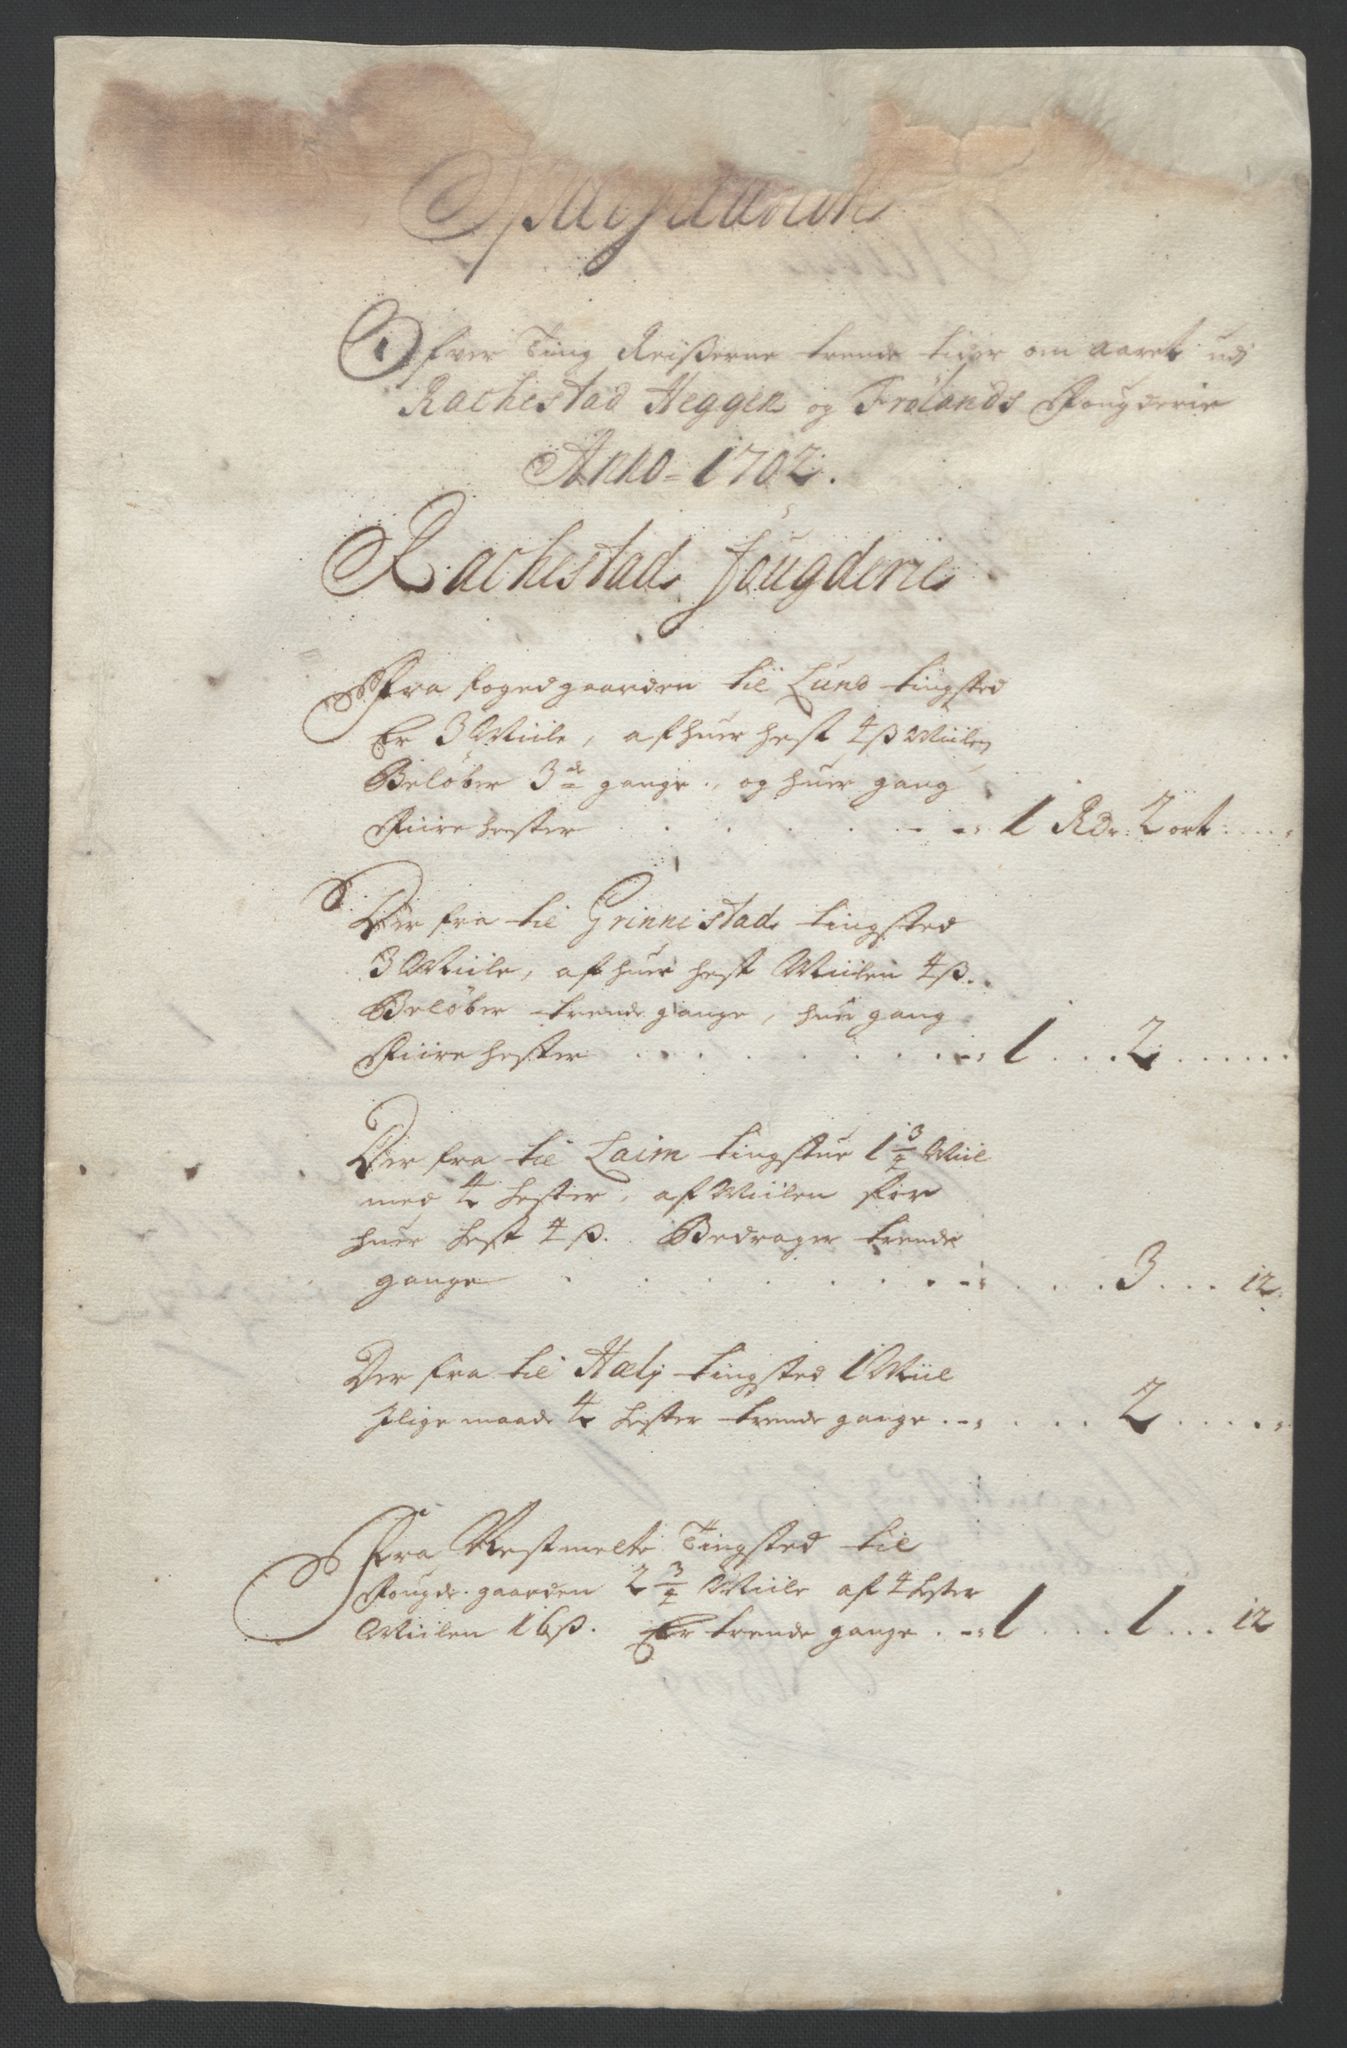 Ofver Ting Reißerne trende tider om aaret udj
Rachestad Heggen og Frølands Fougderie
Anno 1702.
Rachestad fougderie
Fra fogedgaarden til Lund tingsted
Er 3 Miile, af huer hest 4 ß Miilen
Beløber 3de gange, og huer gang
Fiire hester . . . . . . 1 Rdr. 2 ort . . .
Der fra til Grinnestad tingsted
3 Miile, af huer hest Miilen 4 ß.
Beløber trende gange, huer gang
Fiire hester . . . . . . 1 . . . 2 . . . . .
Der fra til Laim tingstue 1 3/4 Miil
med 4 hester, af Miilen for
huer hest 4 ß. Bedrager trende
gange . . . . . . . . . 3 . . . 12.
Der fra til Hælj tingsted 1 Miil
Jlige maade 4 hester trende gange . . . . . 2 . . . .
Fra tingsted til
Fougde gaarden 2 3/4 Miile af 4 hester
Miilen 16 ß. Er trende gange . . . 1 . . . 1 . . . 12